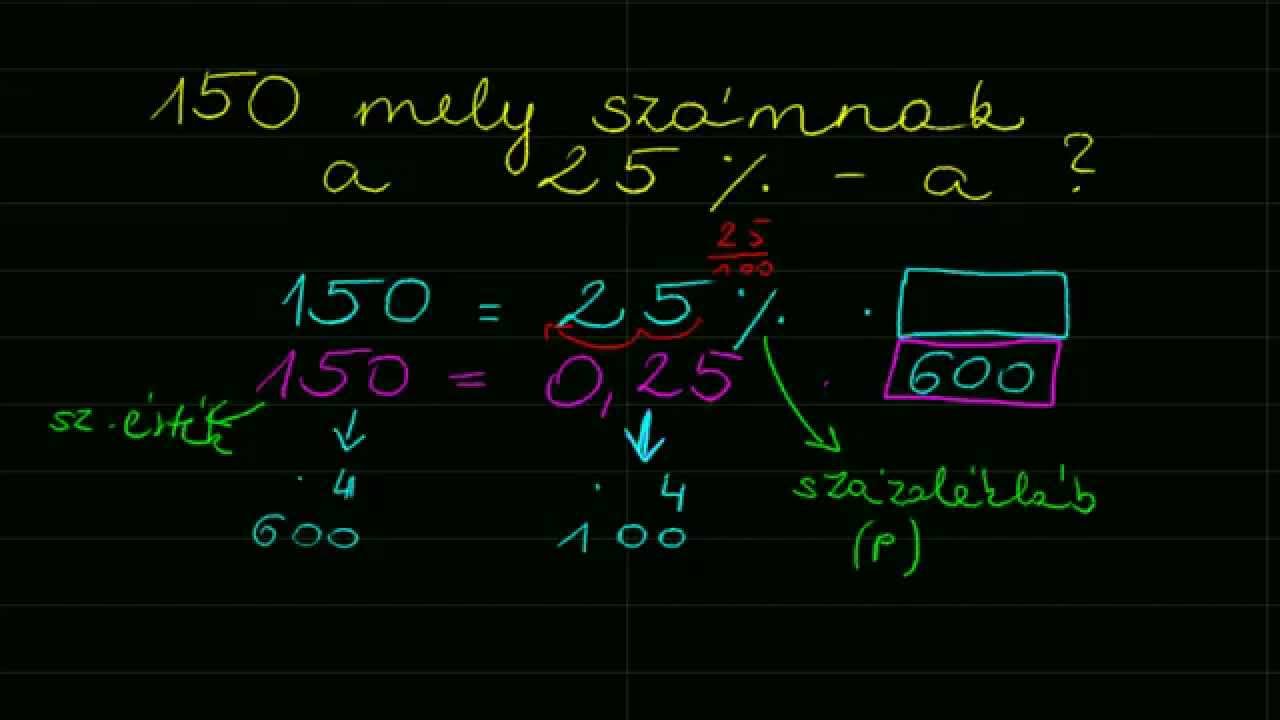 150 mely számnak
a 25%-a?
25
100
150 = 25% ·
150 = 0,25 · 600
sz.érték
· 4 · 4
százalékláb
600 100
(p)